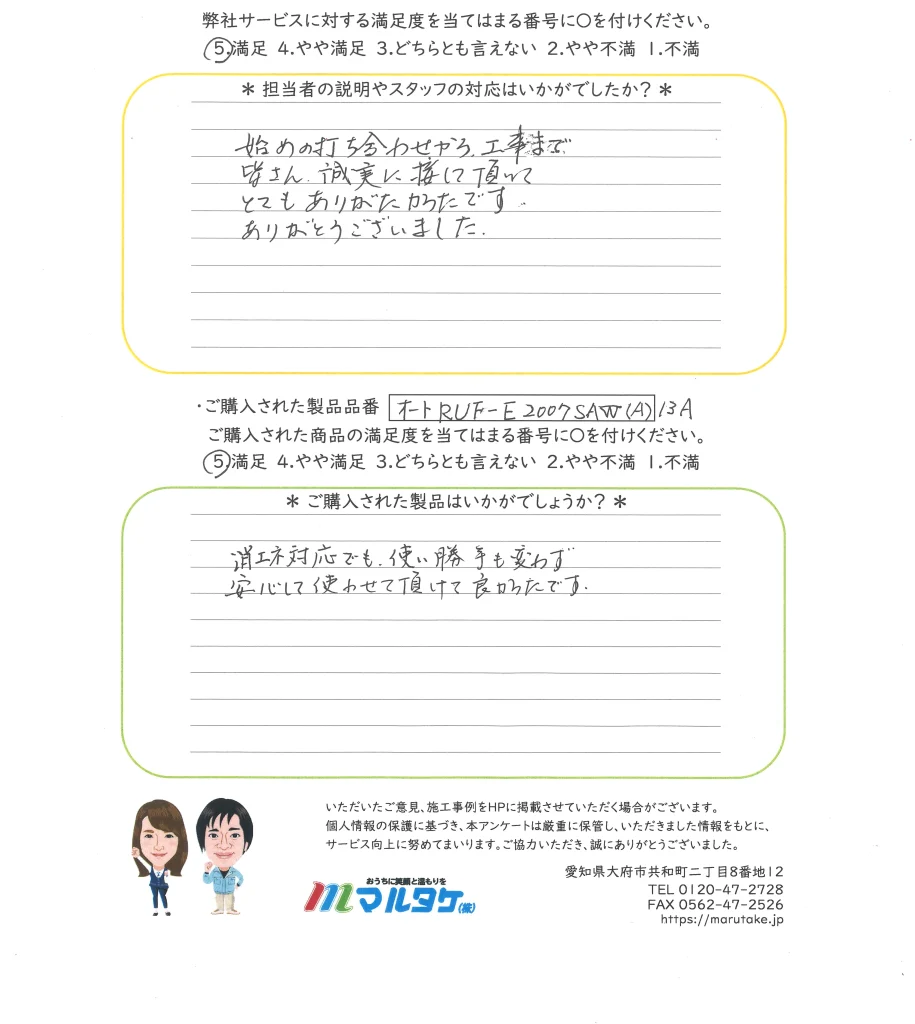 弊社サービスに対する満足度を当てはまる番号に○を付けください。
5.満足 4.やや満足 3.どちらとも言えない 2.やや不満 1.不満
＊ 担当者の説明やスタッフの対応はいかがでしたか？ ＊
始めの打ち合わせから、工事まで
皆さん、誠実に接して頂いて
とてもありがたかったです。
ありがとうございました。
・ご購入された製品品番 オートRUF-E2007SAW(A)13A
ご購入された商品の満足度を当てはまる番号に○を付けください。
5.満足 4.やや満足 3.どちらとも言えない 2.やや不満 1.不満
＊ ご購入された製品はいかがでしょうか？ ＊
消エネ対応でも、使い勝手も変わず
安心して使わせて頂けて良かったです。
いただいたご意見、施工事例をHPに掲載させていただく場合がございます。
個人情報の保護に基づき、本アンケートは厳重に保管し、いただきました情報をもとに、
サービス向上に努めてまいります。ご協力いただき、誠にありがとうございました。
おうちに笑顔と温もりを
mマルタケ(株)
愛知県大府市共和町二丁目8番地12
TEL 0120-47-2728
FAX 0562-47-2526
https://marutake.jp